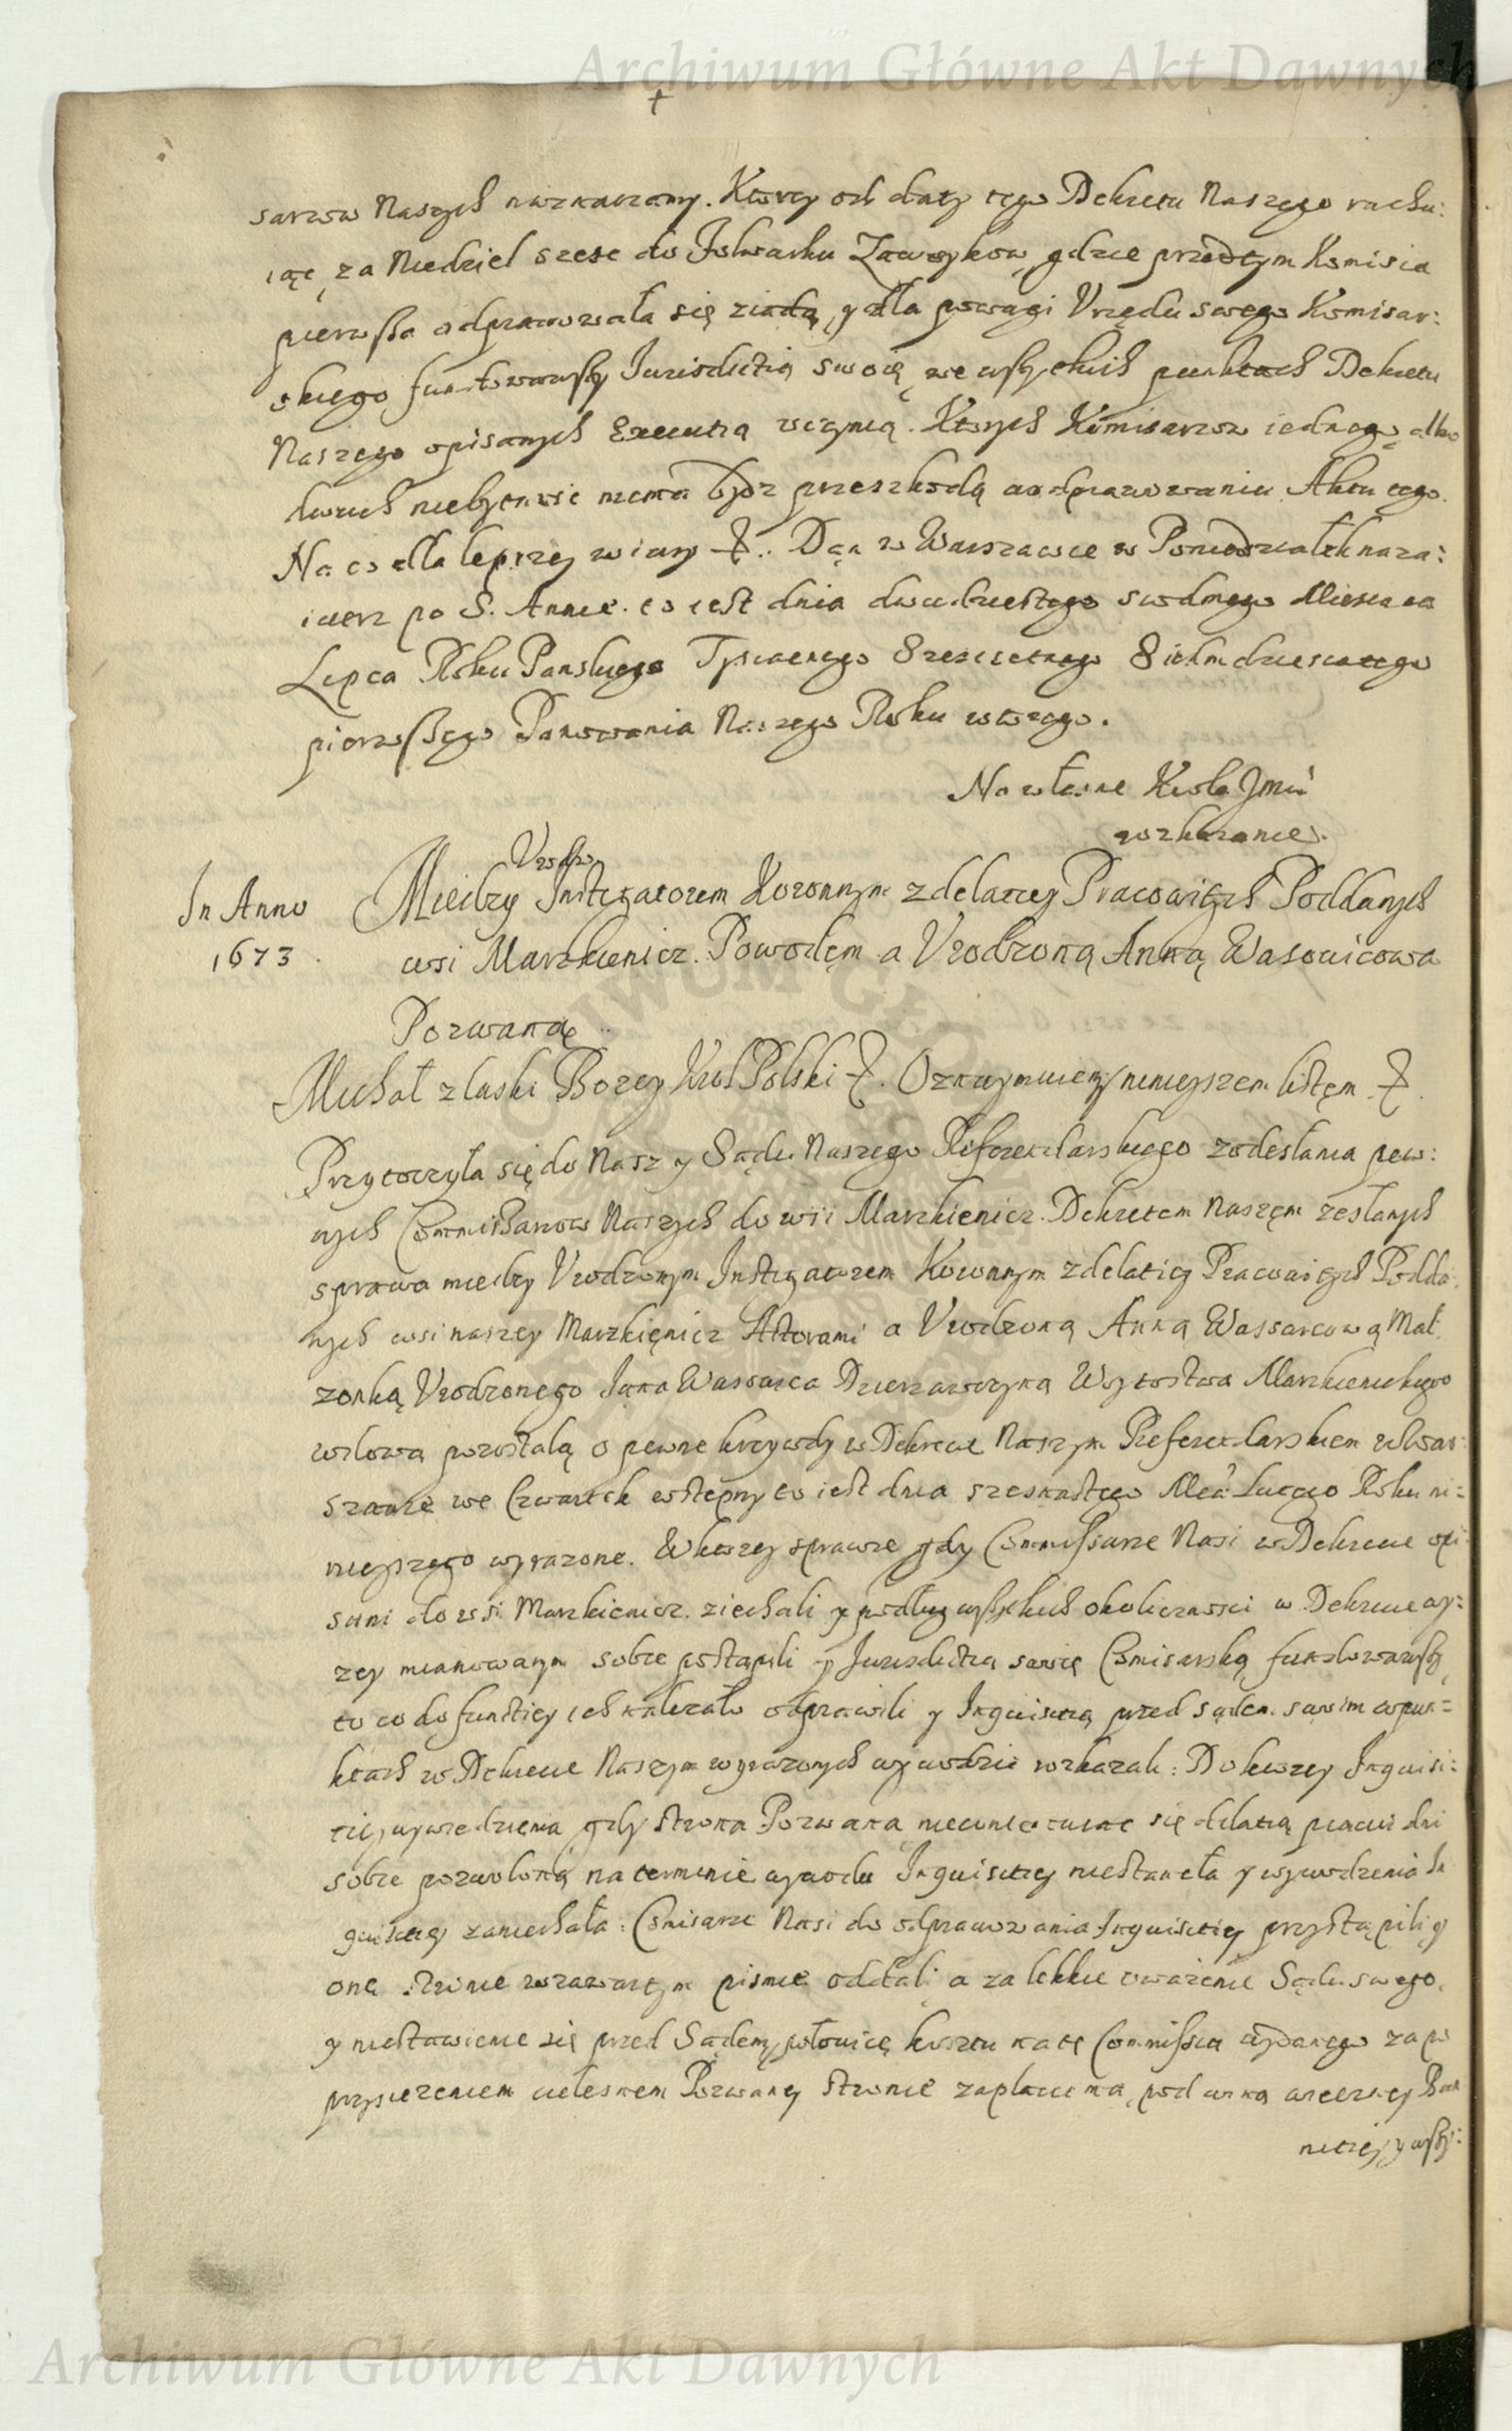 Archiwum Główne Akt Dawnych
sarzow Naszych naznaczamy. Ktorzy od daty tego Dekretu Naszego rachu:
iąc, za Niedziel szesc do Folwarku Zawozykow, gdzie przedtym Komisia
pierwsza odprawowała się ziadą, y dla powagi Vrzędu swego Komisar:
skiego fundowawszy Jurisdictią swoię, we wszytkich punktach Dekretu
Naszego opisanych Executią uczynią. Ktorych Komisarzow iednego, albo
dwuch niebytnosc niema bydz przeszkodą do odprawowaniu Aktu tego.
Na co dla lepszey wiary &. Dan w Warszawie w Poniedziałek naza:
iutrz po S. Annie. to iest dnia dwudziestego siodmego Miesiąca
Lipca Roku Panskiego Tysiącnego Szescsetnego Siedmdziesiatego
pierwszego Panowania Naszego Roku wtorego.
Na własne Krola Jmci
rozkazanie.
In Anno
1673.
Vrodzo.
Miedzy Instigatorem Koronnym z delatiey Pracowitych Poddanych
wsi Markienicz. Powodem a Vrodzoną Anną Wasowicowa
Pozwaną
Michał z laski Bozey Krol Polski &. Oznaymuiemy ninieyszem listem &.
Przytoczyła się do Nas y Sądu Naszego Referendarskiego z odesłania pew:
nych Commissarzow Naszych do wsi Markienicz. Dekretem Naszem zesłanych
sprawa miedzy Vrodzonym Instigatorem Koronnym z delatiey Pracowitych Podda.
nych wsi naszey Markienicz Aktorami a Vrodzoną Anną Wassarcową Mał
zonką Vrodzonego Jana Wassarca Dzierzawczyną Woytostwa Markienickiego
wdową pozostałą o pewne krzywdy w Dekrecie Naszym Referendarskiem w War
szawie we Czwartek wstepny to iest dnia szesnastego Mca Lutego Roku ni:
nieyszego wyrazone. W ktorey sprawie gdy Commissarze Nasi w Dekrecie opi
sani do wsi Markienicz. ziechali y podług wszytkich okolicznosci w Dekrecie wy:
zey mianowanym sobie postąpili y Jurisdictią swoię Comisarską fundowawszy
to co do functiey ich nalezało odprawili y Inquisitią przed sądem swoim w pun=
ktach w Dekrecie Naszym wyrazonych wywodzic rozkazali: Do ktorey Inquisi:
tiey wywiedzienia gdy strona Pozwana niecontentuiac się dilatią praevi dni
sobie pozwoloną na terminie wywodu Inquisitiey niestaneła y wywodzenia In
quisitiey zaniechała: Comisarze Nasi do odprawowania Inquisitiey przystąpili y
onę stronie w zawartym pismie oddali, a za lekkie uważenie Sądu swego,
y niestawienie się przed Sądem, połowicę kosztu na tę Commissią wydanego za po
przysiezeniem cielesnem Pozwaney stronie zapłacic ma, pod winą wieczney Ban
nitiey, y wszy:
Archiwum Główne Akt Dawnych